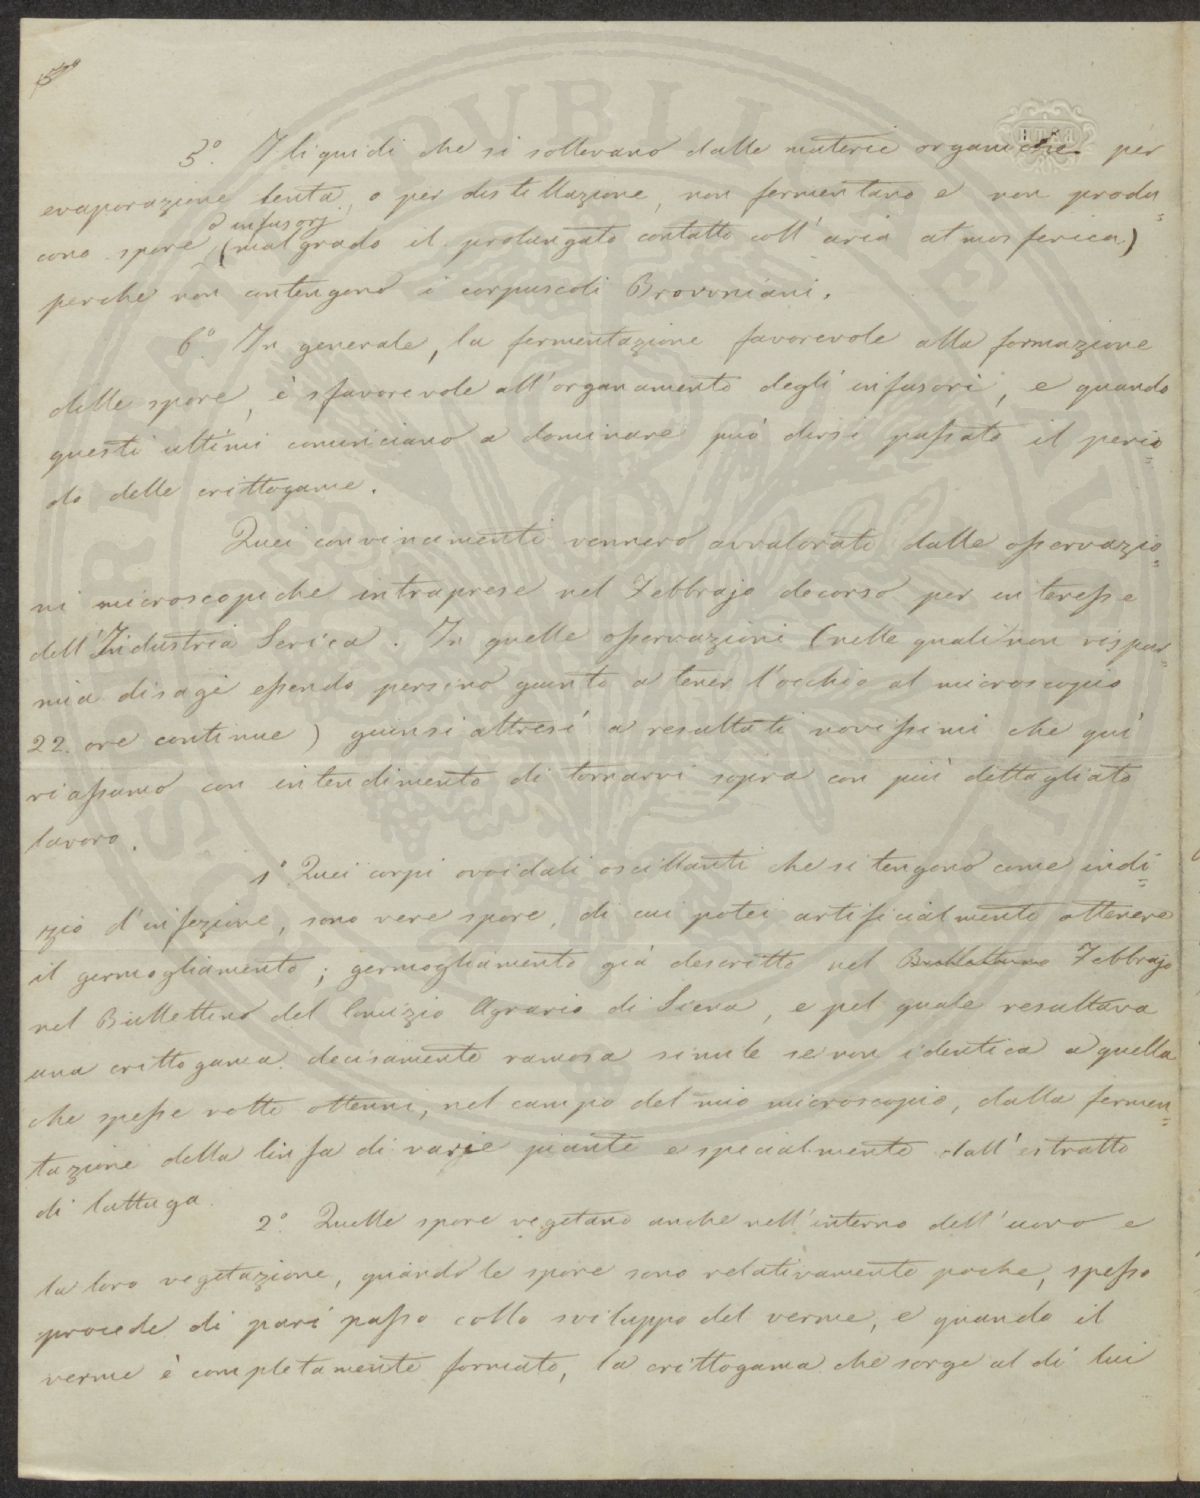 5º. I liquidi che si sollevano dalle materie organiche per
evaporazione lenta, o per distillazione, non fermentano e non produ=
o infusorj
cono spore (malgrado il prolungato contatto coll'aria atmosferica)
perche non contengono i corpuscoli Brovoniani.
6º. In generale, la fermentazione favorevole alla formazione
delle spore, è sfavorevole all'organamento degli infusori, e quando
questi ultimi cominciano a dominare può dirsi passato il perio=
do delle crittogame.
Quei convincimenti vennero avvalorati dalle osservazio=
ni microscopiche intraprese nel Febbrajo decorso per interesse
dell'Industria Serica. In quelle osservazioni (nelle quali non rispar=
miai disagi essendo persino giunto a tener l'occhio al microscopio
22. ore continue) giunsi altresì a resultati novissimi che quì
riassumo con intendimento di tornarvi sopra con più dettagliato
lavoro.
1º. Quei corpi ovoidali oscillanti che si tengono come indi=
zio d'infezione, sono vere spore, di cui potei artificialmente ottenere
il germogliamento; germogliamento già descritto nel Bullettino Febbrajo
nel Bullettino del Comizio Agrario di Siena, e pel quale resultava
una crittogama decisamente ramosa simile se non identica a quella
che spesse volte ottenni, nel campo del mio microscopio, dalla fermen=
tazione della linfa di varie piante e specialmente dall'estratto
di lattuga.
2º. Quelle spore vegetano anche nell'interno dell'uovo e
la loro vegetazione, quando le spore sono relativamente poche, spesso
procede di pari passo collo sviluppo del verme, e quando il
verme è completamente formato, la crittogama che sorge al di lui